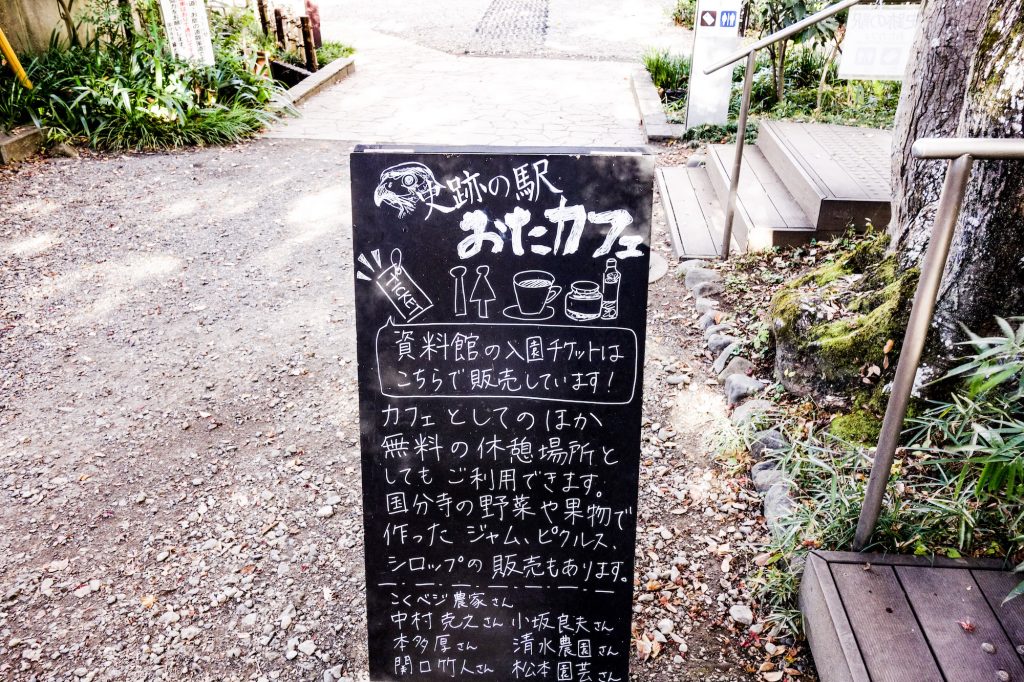 史跡の駅
おたカフェ
TICKET
資料館の入園チケットは
こちらで販売しています！
カフェとしてのほか
無料の休憩場所と
してもご利用できます。
国分寺の野菜や果物で
作ったジャム、ピクルス、
シロップの販売もあります。
こくベジ農家さん
中村克之さん 小坂良夫さん
本多厚さん 清水農園さん
関口竹人さん 松本園芸さん